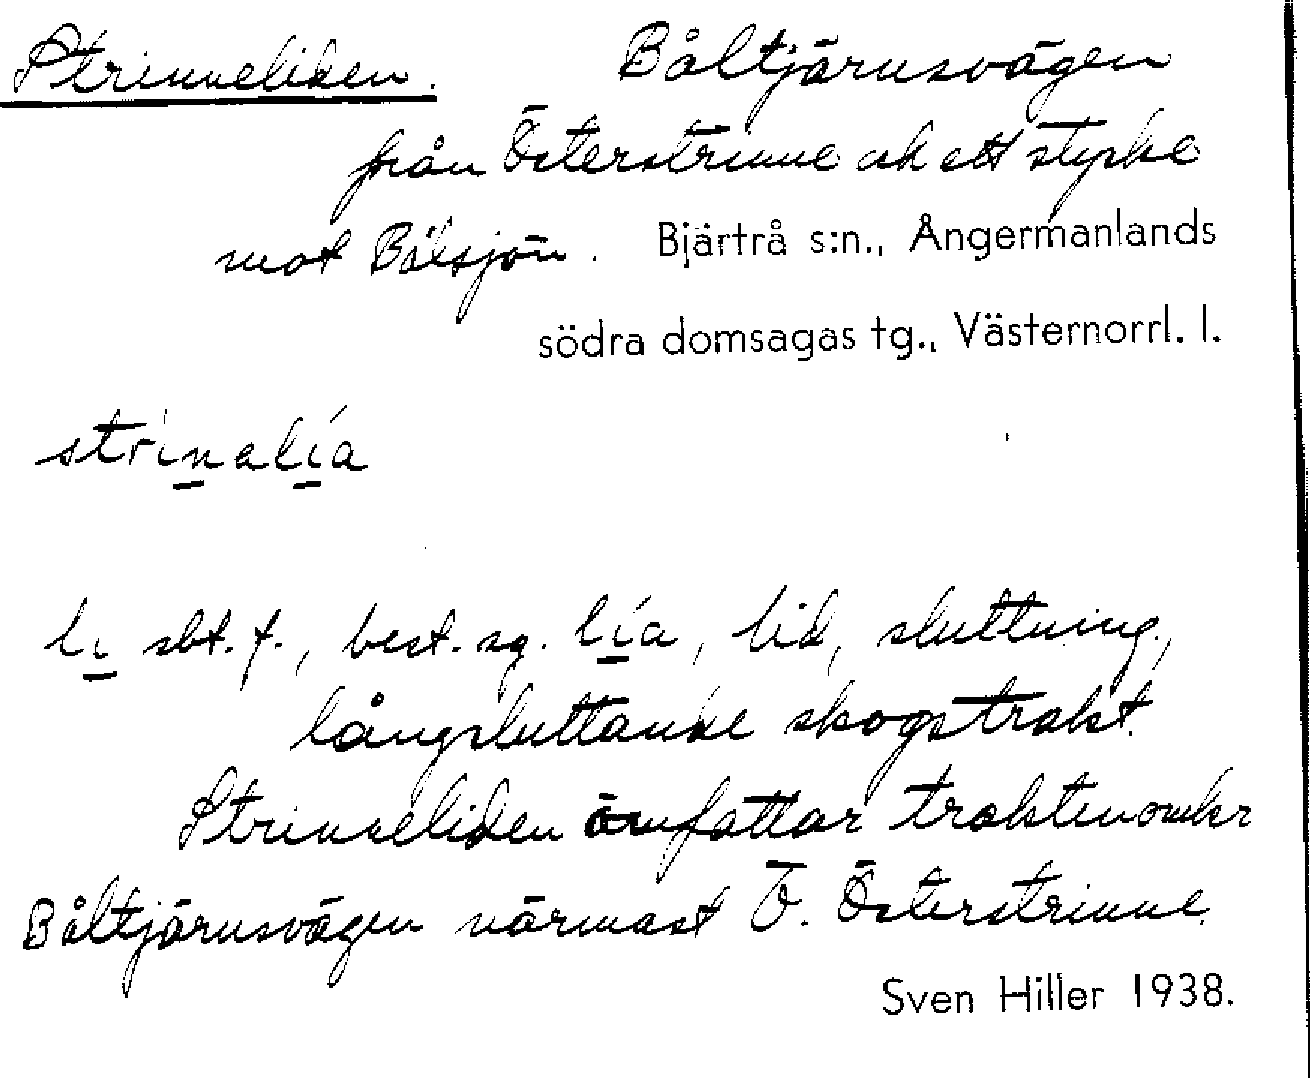 Strinneliden. Båltjärnsvägen
från Österstrinne och ett stycke
mot Bålsjön. Bjärtrå s:n., Ångermanlands
södra domsagas tg., Västernorrl. l.
strinalía
li sbt. f., best. sg. lía, lid, sluttning,
långsluttande skogstrakt.
Strinneliden omfattar trakten omkr
Båltjärnsvägen närmast V. Österstrinne.
Sven Hiller 1938.